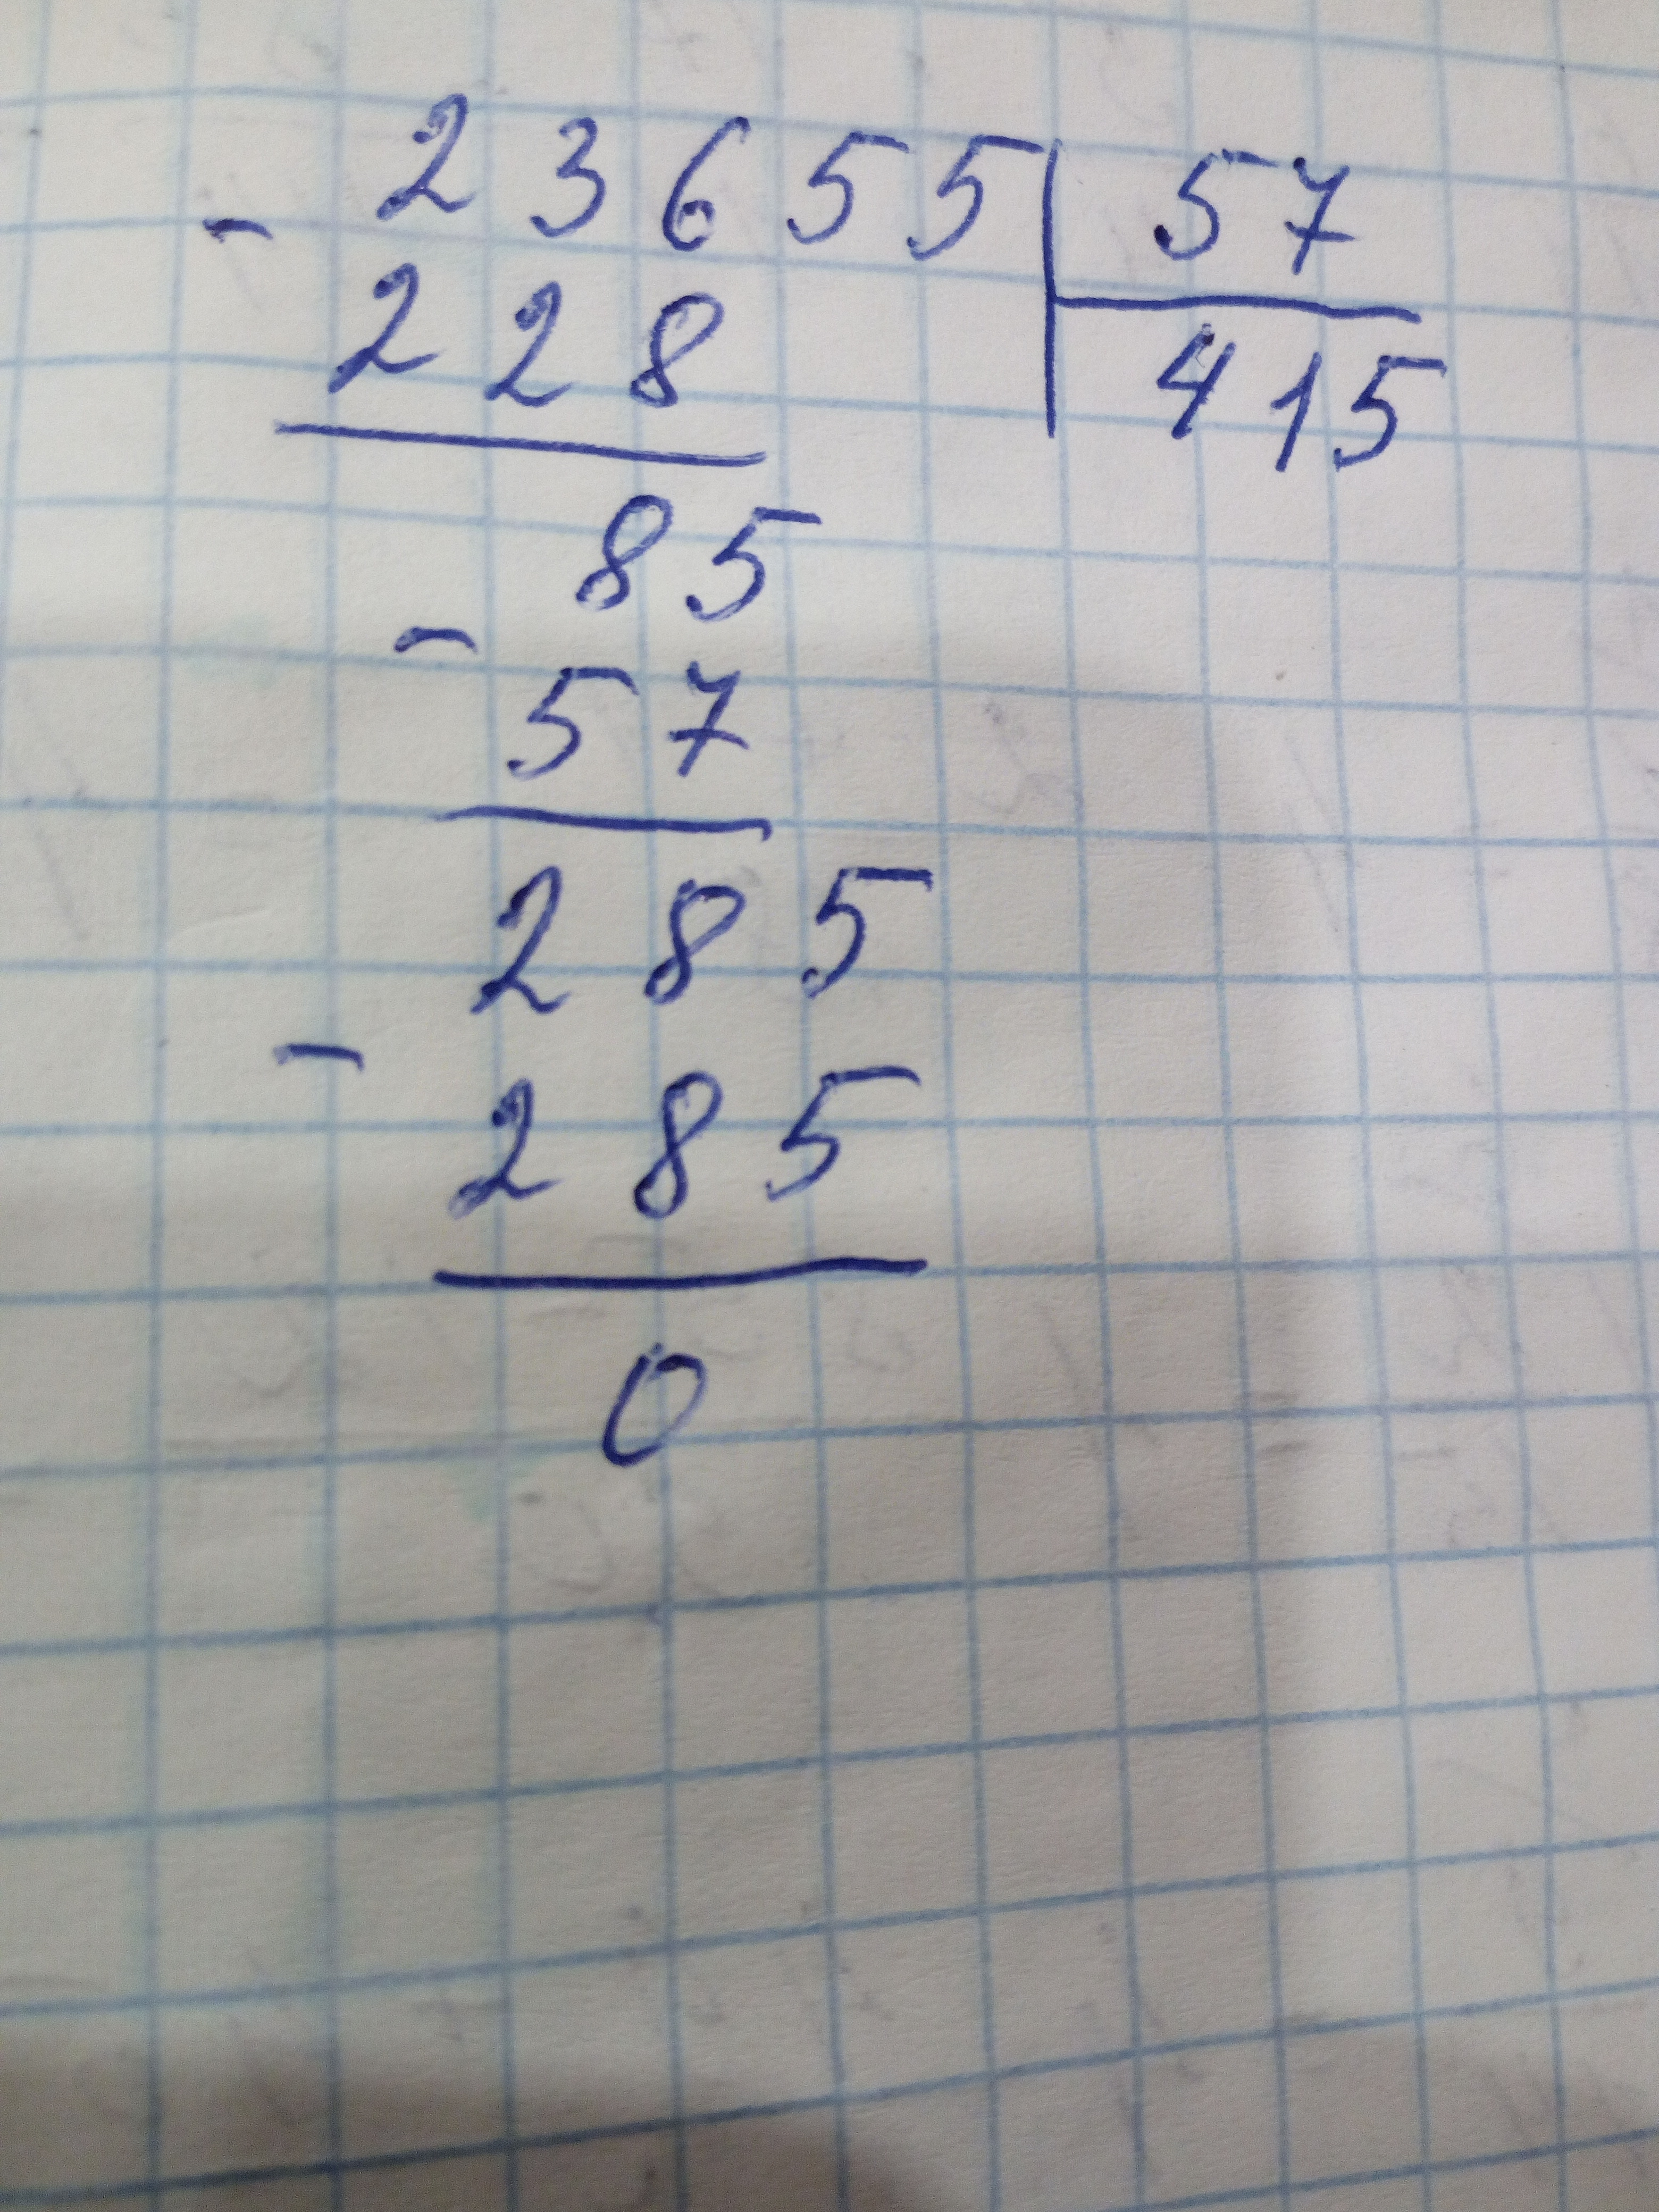 23655 57
- 228 415
85
- 57
285
- 285
0